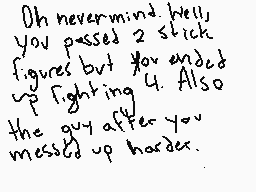 Oh nevermind. Well,
you passed 2 stick
figures but you ended
up fighting 4. Also
the guy after you
messed up harder.